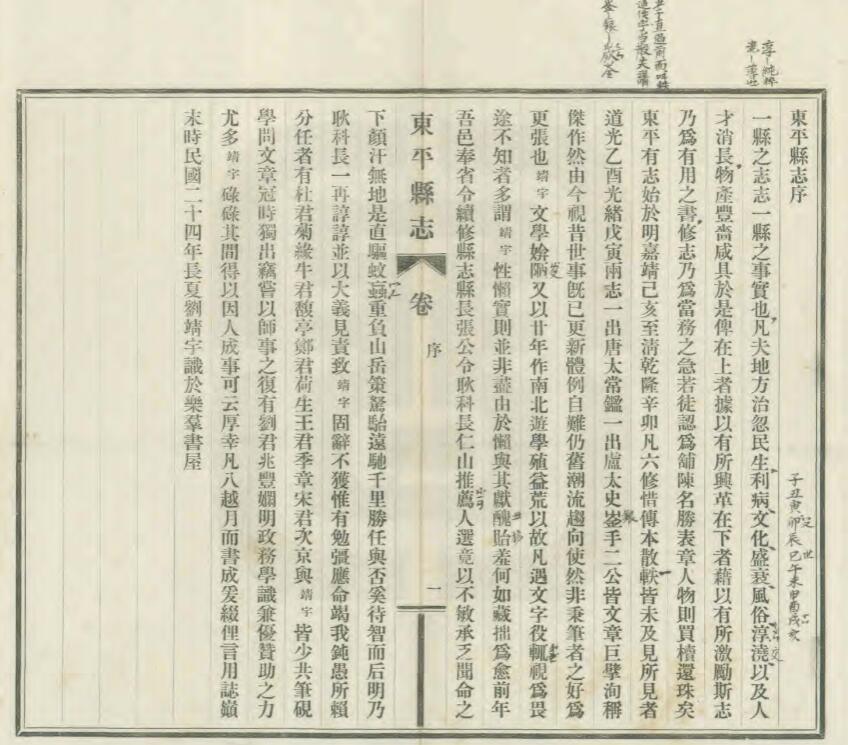 東平縣志序
一縣之志志一縣之事實也凡夫地方治忽民生利病文化盛衰風俗淳澆以及人
才消長物產豐嗇咸具於是俾在上者據以有所興革在下者藉以有所激勵斯志
乃爲有用之書修志乃爲當務之急若徒認爲舖陳名勝表章人物則買櫝還珠矣
東平有志始於明嘉靖己亥至清乾隆辛卯凡六修惜傳本散軼皆未及見所見者
道光乙酉光緒戊寅兩志一出唐太常鑑一出盧太史崟手二公皆文章巨擘洵稱
傑作然由今視昔世事旣已更新體例自難仍舊潮流趨向使然非秉筆者之好爲
更張也靖宇文學媕陋又以廿年作南北遊學殖益荒以故凡遇文字役輒視爲畏
途不知者多謂靖宇性懶實則並非盡由於懶與其獻醜貽羞何如藏拙爲愈前年
吾邑奉省令續修縣志縣長張公令耿科長仁山推薦人選竟以不敏承乏聞命之
東平縣志
卷
序
一
下顏汗無地是直驅蚊蝱重負山岳策駑駘遠馳千里勝任與否奚待智而后明乃
耿科長一再諄諄並以大義見責致靖宇固辭不獲惟有勉彊應命竭我鈍愚所賴
分任者有杜君菊緣牛君馥亭鄭君荷生王君季章宋君次京與靖宇皆少共筆硯
學問文章冠時獨出竊嘗以師事之復有劉君兆豐嫻明政務學識兼優贊助之力
尤多靖宇碌碌其間得以因人成事可云厚幸凡八越月而書成爰綴俚言用誌巔
末時民國二十四年長夏劉靖宇識於樂羣書屋
子丑寅卯辰巳午未申酉戌亥